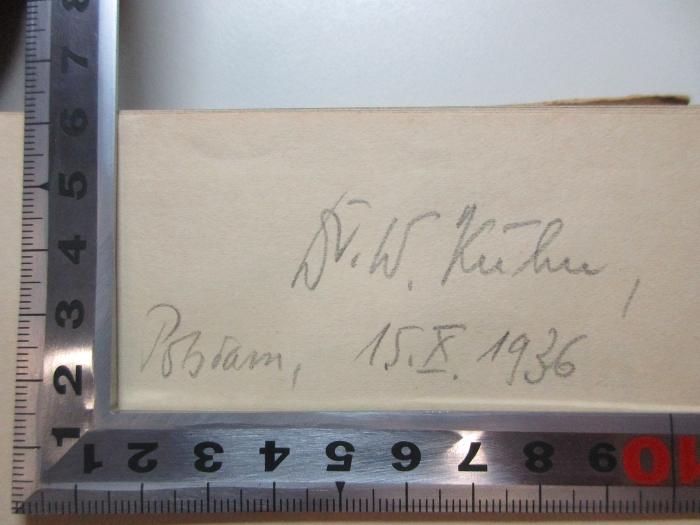 Dr. W. Kühn,
Potsdam, 15.X.1936
8
7
6
5
4
3
2
1
1 2 3 4 5 6 7 8 9 10